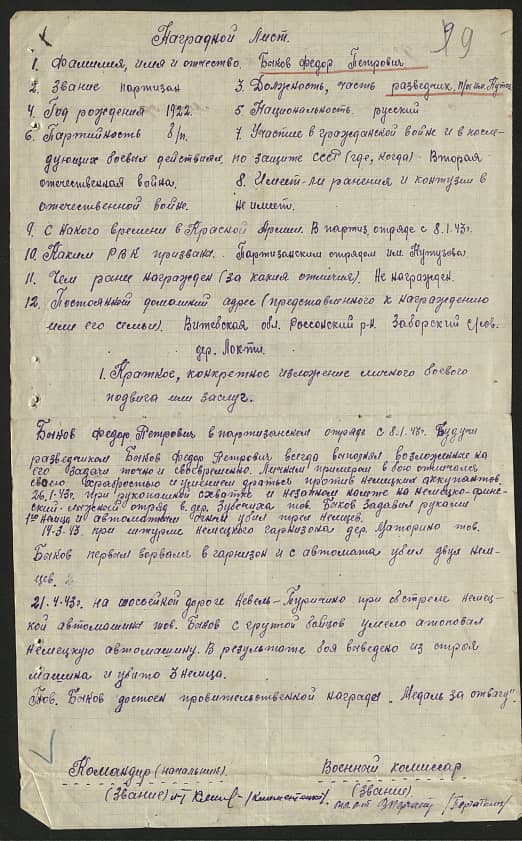 99
Наградной Лист.
1. Фамилия, имя и отчество. Быков Федор Петрович
2. Звание партизан 3. Должность, часть разведчик, п/от им. Кутуз
4. Год рождения 1922. 5. Национальность. русский
6. Партийность б/п. 7. Участие в гражданской войне и в после-
дующих боевых действиях по защите СССР (где, когда) Вторая
отечественная война. 8. Имеет-ли ранения и контузии в
отечественной войне. Не имеет.
9. С какого времени в Красной Армии. В партиз. отряде с 8.1.43г.
10. Каким РВК призван. Партизанским отрядом им. Кутузова
11. Чем ранее награжден (за какия отличия). Не награжден.
12. Постоянной домашний адрес (представленного к награждению
или его семьи). Витебская обл. Россонский р-н. Заборский с/сов.
дер. Локти.
1. Краткое, конкретное изложение личного боевого
подвига или заслуг.
Быков Федор Петрович в партизанском отряде с 8.1.43г. Будучи
разведчиком Быков Федор Петрович всегда выполнял возложенные на
его задачи точно и своевременно. Личным примером в бою отличался
своею храбростью и умением драться против немецких оккупантов.
26.1.43г. при рукопашной схватке и незапном налете на немецко-финс-
кий лыжной отряд в дер. тов. Быков задавил руками
1го немца и автоматным огнем убил трех немцев.
14.3.43 при штурме немецкого гарнизона дер. тов.
Быков первым ворвался в гарнизон и с автомата убил двух нем-
цев.
21.4.43г. на шоссейной дороге Невель-Туричино при обстреле немец-
кой автомашины тов. Быков с групой бойцов умело атоковал
немецкую автомашину. В результате боя выведено из строя
машина и убито 3 немца.
Тов. Быков достоен провительственной награды „Медаль за отвагу".
Командир (начальник). Военный комиссар
(Звание) (Клименченко). (Звание)